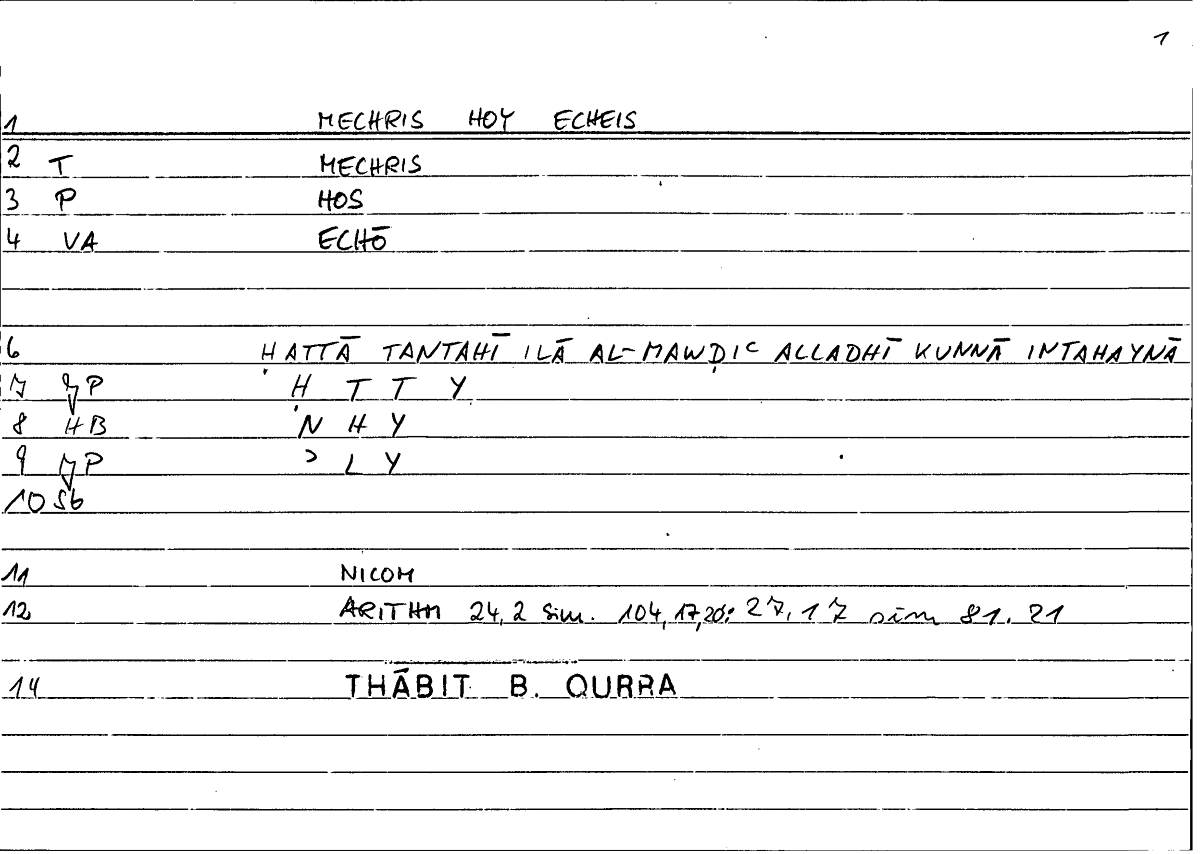 1
1 MECHRIS HOY ECHEIS
2 T MECHRIS
3 P HOS
4 VA ECHŌ
6 ḤATTĀ TANTAHĪ ILĀ AL-MAWḌIʿ ALLADHĪ KUNNĀ INTAHAYNĀ
7 P Ḥ T T Y
8 HB N H Y
9 P ʾ L Y
10 Sb
11 NICOM
12 ARITHM 24,2 sim. 104,17,20; 27,17 sim 81.21
14 THĀBIT B. QURRA